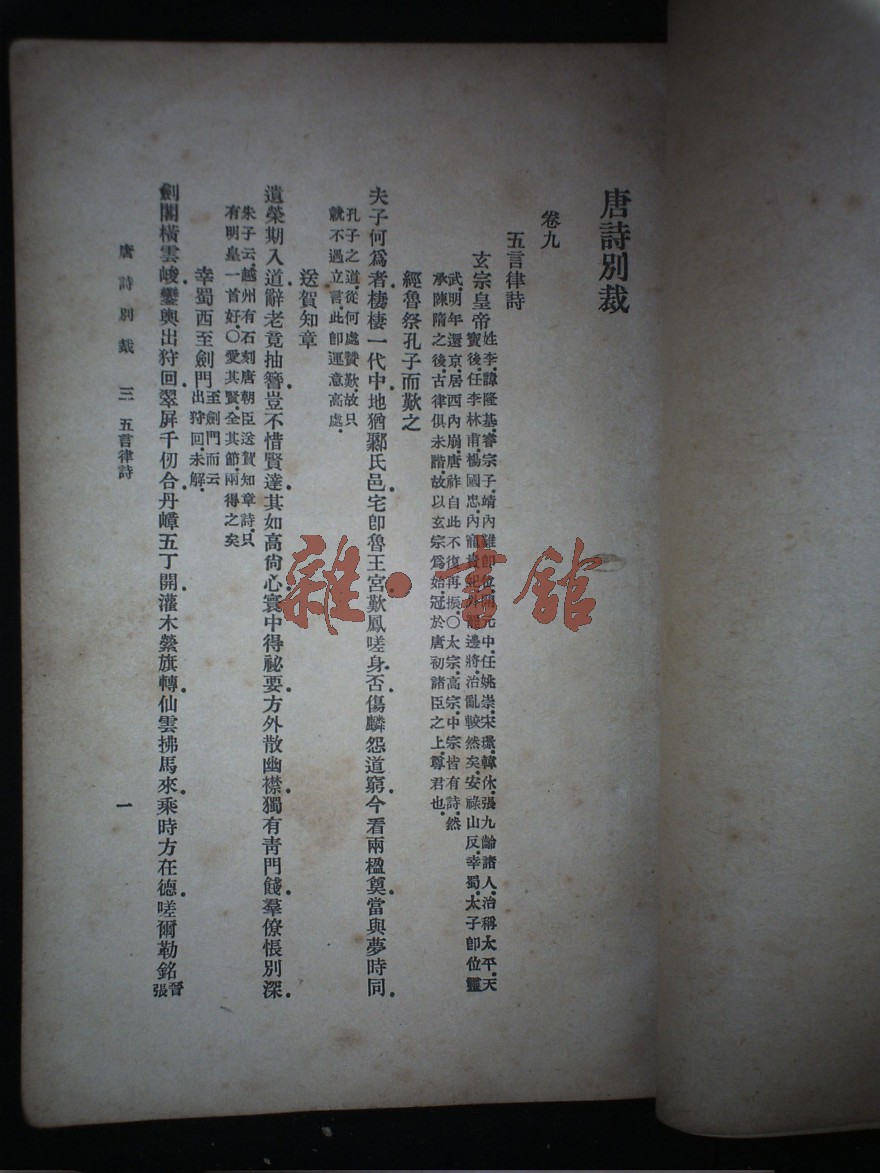 唐詩別裁
卷九
五言律詩
玄宗皇帝 姓李諱隆基睿宗子靖內難卽位開元中任姚崇宋璟韓休張九齡諸人治稱太平天
寶後任李林甫楊國忠內寵貴妃外寵邊將治亂較然矣安祿山反幸蜀太子卽位靈
武明年還京居西內崩唐祚自此不復再振〇太宗高宗中宗皆有詩然
承陳隋之後古律俱未諧故以玄宗爲始冠於唐初諸臣之上尊君也
經魯祭孔子而歎之
夫子何爲者棲棲一代中地猶鄹氏邑宅卽魯王宮歎鳳嗟身否傷麟怨道窮今看兩楹奠當與夢時同
孔子之道從何處贊歎故只
就不遇立言此卽運意高處
送賀知章
遺榮期入道辭老竟抽簪豈不惜賢達其如高尙心寰中得祕要方外散幽襟獨有靑門餞羣僚悵別深
朱子云越州有石刻唐朝臣送賀知章詩只
有明皇一首好〇愛其賢全其節兩得之矣
幸蜀西至劍門 至劍門而云
出狩回未解
劍閣橫雲峻鑾輿出狩回翠屛千仞合丹嶂五丁開灌木縈旗轉仙雲拂馬來乘時方在德嗟爾勒銘 晉
張
唐詩別裁 三 五言律詩 一
雜·書館